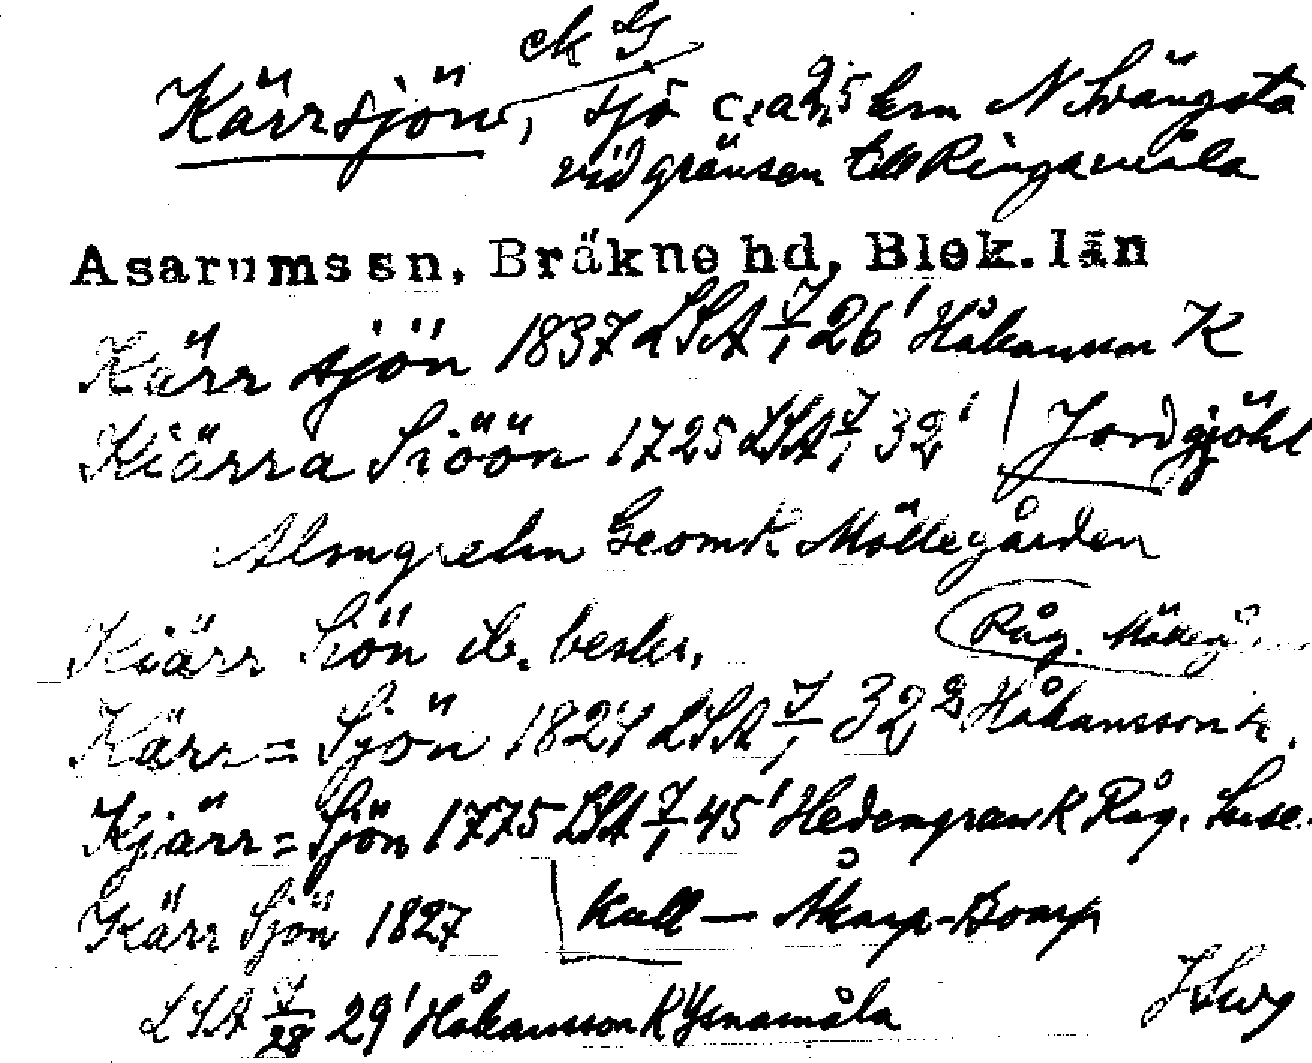 ek G
Kärrsjön, sjö c:a 2,5 km N Svängsta
vid gränsen till Ringamåla
Asarums sn, Bräkne hd, Blek. län
Kärr sjön 1837 LSA 7/1 26' Håkansson K
Kiärra Siöön 1725 LSA 7/1 32' Jordgjöhl
Almgrehn Geom K Möllegården
Kiärr Siön ib. beskr. Råg. Mölleg.
Kärr=Sjön 1824 LSA 7/1 32 2 Håkansson K.
Kjärr=Sjön 1775 LSA 7/1 45' Hedengran K Råg.
Kärr Sjön 1827 Kull — Åkarp-Bomp
LSA 7/28 29' Håkansson K Ysnamåla